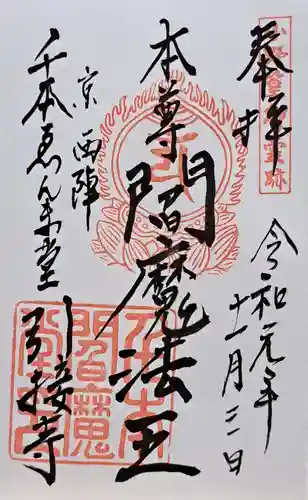 奉拝
令和元年
十一月三日
本尊閻魔法王
京西陣
千本ゑんま堂
引接寺